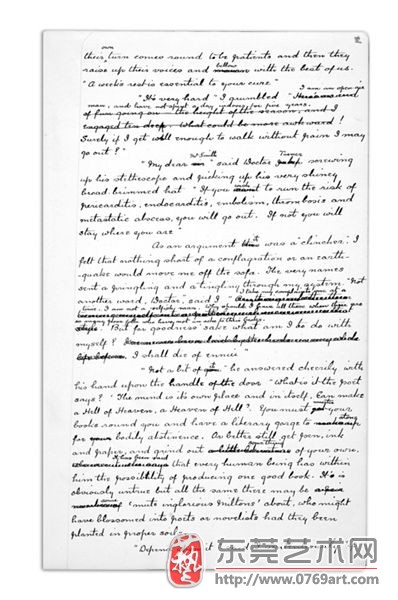 2
own
their turn comes round to be patients and then they
raise up their voices and bellow with the best of us.
"A week's rest is essential to your cure."
"It's very hard" I grumbled "I am an open air
man, and have not spent a day indoors for five years.
of fun going on the height of the season, and I
engaged ten deep. What could be more awkward!
Surely if I get well enough to walk without pain I may
go out?"
Mr Smith Turner
"My dear" said Doctor screwing
up his stethoscope and picking up his very shiney
broad brimmed hat "If you want to run the risk of
pericarditis, endocarditis, embolism, thrombosis and
metastatic abscess, you will go out. If not you will
stay where you are"
As an argument it was a "clincher. I
felt that nothing short of a conflagration or an earth-
quake would move me off the sofa. The very names
sent a pringling and a tingling through my system. "Not
another word, Doctor, said I "
But for goodness' sake what am I to do with
myself?
I shall die of ennui"
"Not a bit of it" he answered cheerily with
his hand upon the handle of the door "What is it the poet
says? 'The mind is its own place and in itself, Can make
a Hell of Heaven, a Heaven of Hell'. You must your
books round you and have a literary gorge to
for your bodily abstinence. Or better still get pen, ink
something
and paper, and grind out of your own.
It has been said
that every human being has within
him the possiblity of producing one good book. It is
obviously untrue but all the same there may be
some
'mute inglorious Miltons' about, who might
have blossomed into poets or novelists had they been
planted in proper soil.
"Depend it
东莞艺术网
http://www.0769art.com